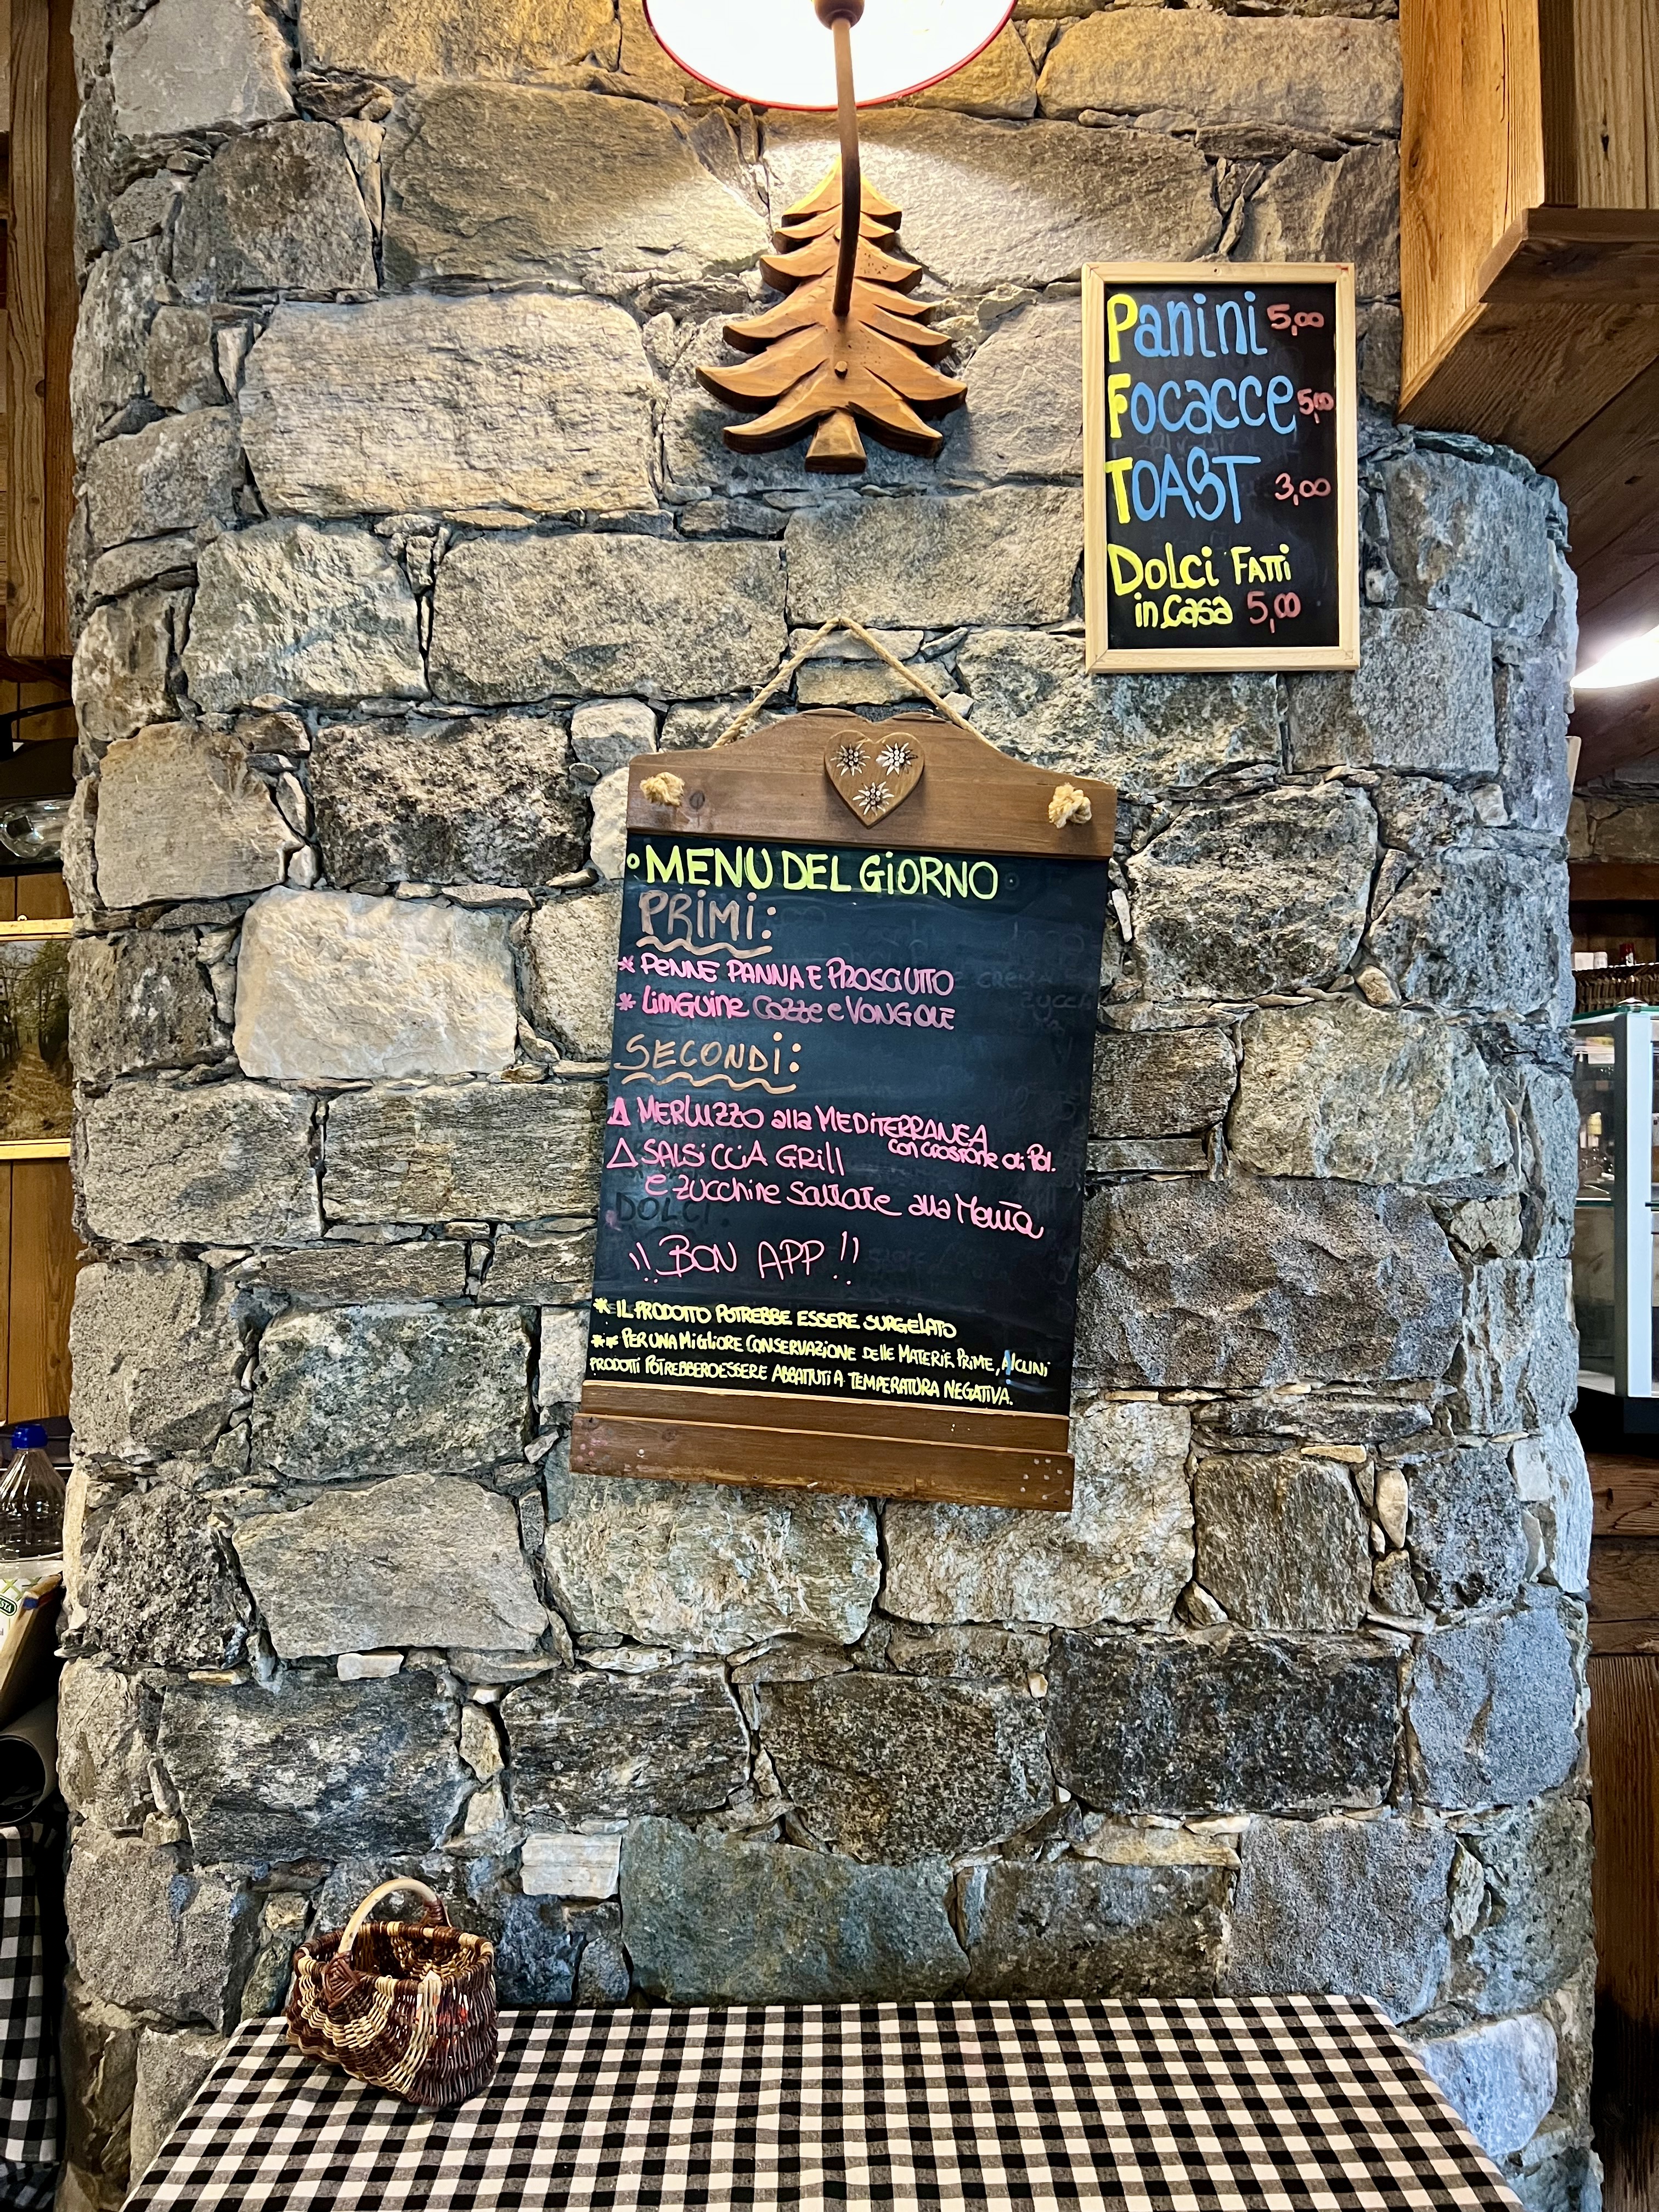 Panini 5,00
Focacce 5,00
TOAST 3,00
DOLCi FATTi
in Casa 5,00
MENU DEL GiORNO
PRiMi:
* PENNE PANNA E PROSCIUTTO
* LiNGUiNE COZZE e VONGOLE
SECONDi:
MERLUZZO alla MEDiTERRANEA
con crostone di Pol.
SALSiCCiA GRill
E zucchine saltate alla Menta
DOLCi:
!! BON APP !!
* IL PRODOTTO POTREBBE ESSERE SURGELATO
** PER UNA MiGLiORE CONSERVAZIONE DELLE MATERIE PRIME, AlCUNi
PRODOTTI POTREBBERO ESSERE ABBATTUTi A TEMPERATURA NEGATIVA.